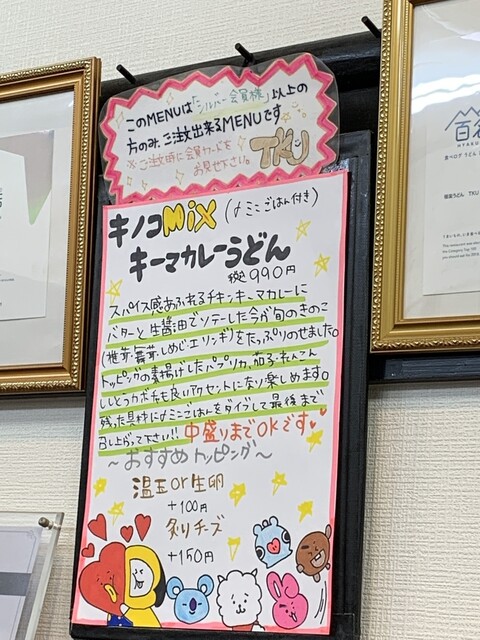 このMENUは「シルバー会員様」以上の
方のみ、ご注文出来るMENUです
※ご注文時に会員カードを
お見せ下さい。
TKU
キノコMix(小ミニごはん付き)
キーマカレーうどん
税込990円
スパイス感あふれるチキンキーマカレーに
バターと生醤油でソテーした今が旬のきのこ
(椎茸・舞茸・しめじ・エリンギ)をたっぷりのせました。
トッピングの素揚げしたパプリカ、茄子・れんこん
ししとうカボチャも良いアクセントになり楽しめます。
残った具材に小ミニごはんをダイブして最後まで
召し上がって下さい!! 中盛りまでOKです
〜おすすめトッピング〜
温玉or生卵
+100円
炙りチーズ
+150円
百名
食べログ うどん
饂飩 TKU